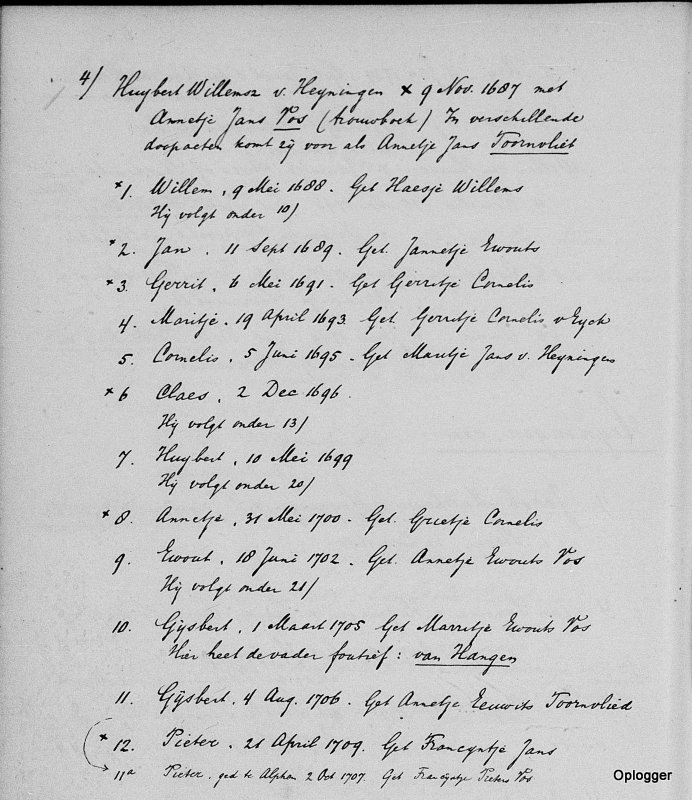 4/ Huybert Willemsz v. Heyningen x 9 Nov. 1687 met
Annetje Jans Vos (trouwboek) In verschillende
doopacten komt zij voor als Annetje Jans Toornvliet
x 1. Willem, 9 Mei 1688. Get Haesje Willems
Hij volgt onder 10/
x 2. Jan. 11 Sept 1689. Get. Jannetje Ewouts
x 3. Gerrit, 6 Mei 1691. Get Gerritje Cornelis
4. Maritje. 19 April 1693. Get. Gerritje Cornelis v Eyck
5. Cornelis, 5 Juni 1695. Get Maritje Jans v. Heyningen
x 6 Claes, 2 Dec 1696.
Hij volgt onder 13/
7. Huybert, 10 Mei 1699
Hij volgt onder 20/
x 8. Annetje, 31 Mei 1700. Get. Grietje Cornelis
9. Ewout, 18 Juni 1702. Get. Annetje Ewouts Vos
Hij volgt onder 21/
10. Gijsbert, 1 Maart 1705 Get Marritje Ewouts Vos
Hier heet de vader foutief: van Hangen
11. Gijsbert, 4 Aug. 1706. Get Annetje Eeuwits Toornvlied
x 12. Pieter. 21 April 1709. Get Francyntje Jans
11a Pieter. ged te Alphen 2 Oct 1707. Get Francyntje Pieters Vos
Oplogger